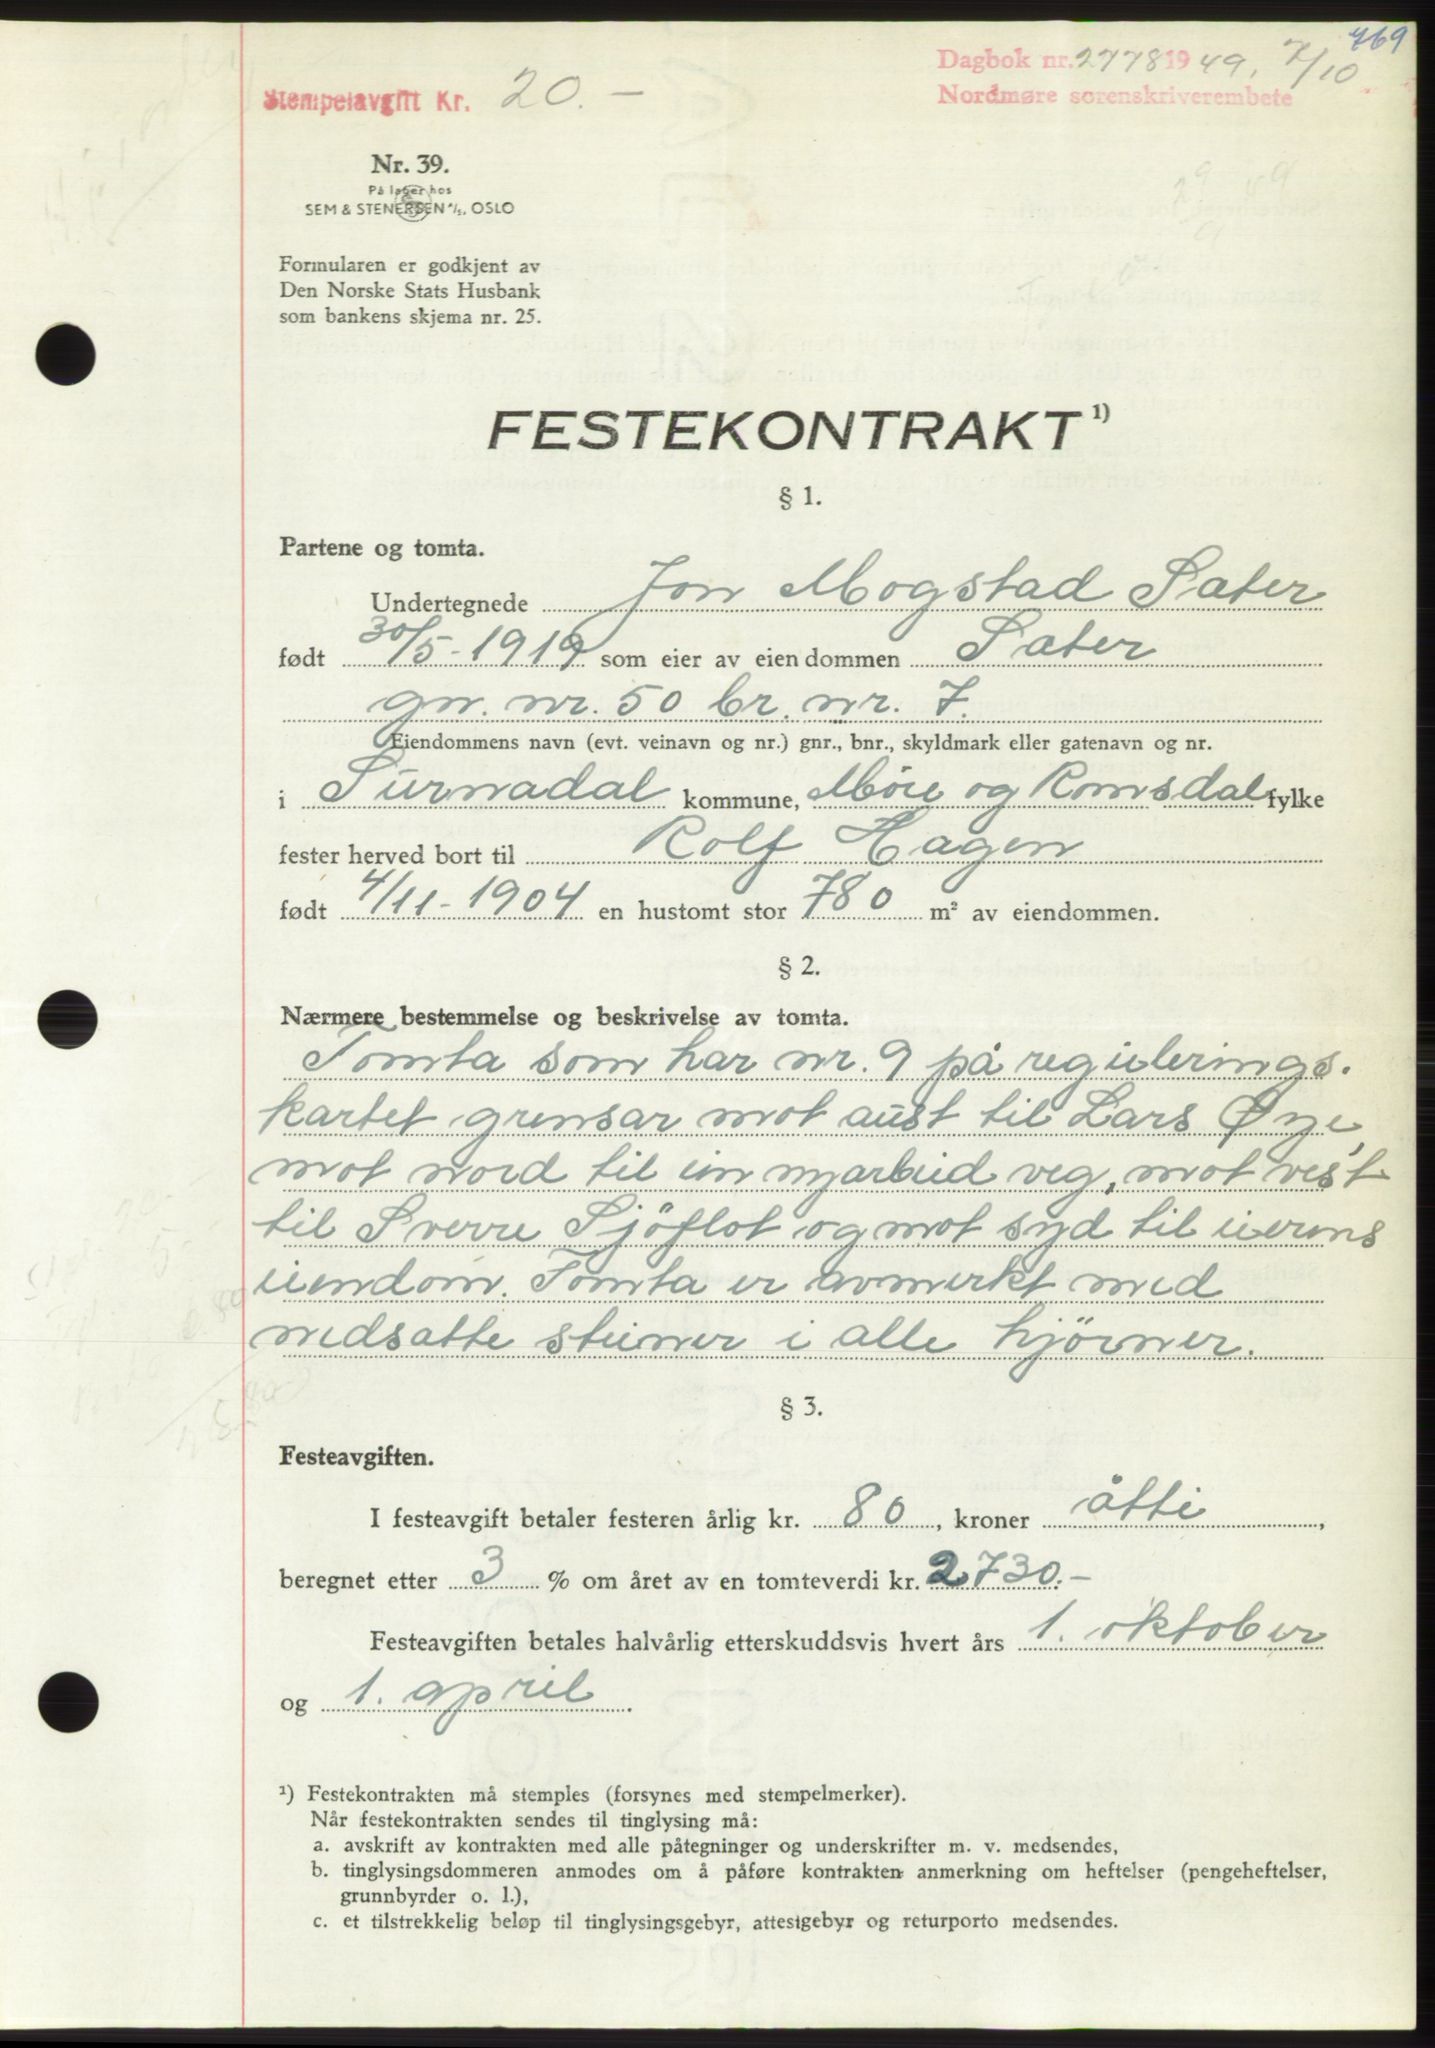 769
Dagbok nr. 2778 1949, 7/10
Stempelavgift Kr. 20.—
Nordmøre sorenskriverembete
Nr. 39.
På lager hos
SEM & STENERSEN A/S, OSLO
Formularen er godkjent av
Den Norske Stats Husbank
som bankens skjema nr. 25.
FESTEKONTRAKT 1)
§ 1.
Partene og tomta.
Undertegnede Jon Mogstad Sæter
født 30/5-1919 som eier av eiendommen Sæter
gn. nr. 50 br. nr. 7.
Eiendommens navn (evt. veinavn og nr.) gnr., bnr., skyldmark eller gatenavn og nr.
i Surnadal kommune, Møre og Romsdal fylke
fester herved bort til Rolf Hagen
født 4/11-1904 en hustomt stor 780 m² av eiendommen.
§ 2.
Nærmere bestemmelse og beskrivelse av tomta.
Tomta som har nr. 9 på regulerings-
kartet grensar mot aust til Lars Øye,
mot nord til ein nyarbeid veg, mot vest
til Sverre Sjöflot og mot syd til eierens
eiendom. Tomta er avmerkt med
nedsatte steiner i alle hjörner.
§ 3.
Festeavgiften.
I festeavgift betaler festeren årlig kr. 80, kroner åtti,
beregnet etter 3 % om året av en tomteverdi kr. 2730.-
Festeavgiften betales halvårlig etterskuddsvis hvert års 1. oktober
og 1. april.
1) Festekontrakten må stemples (forsynes med stempelmerker).
Når festekontrakten sendes til tinglysing må:
a. avskrift av kontrakten med alle påtegninger og underskrifter m. v. medsendes,
b. tinglysingsdommeren anmodes om å påføre kontrakten anmerkning om heftelser (pengeheftelser,
grunnbyrder o. l.),
c. et tilstrekkelig beløp til tinglysingsgebyr, attestgebyr og returporto medsendes.